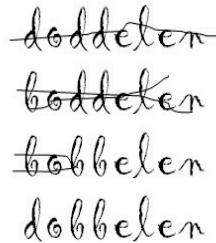 doddelen
boddelen
bobbelen
dobbelen